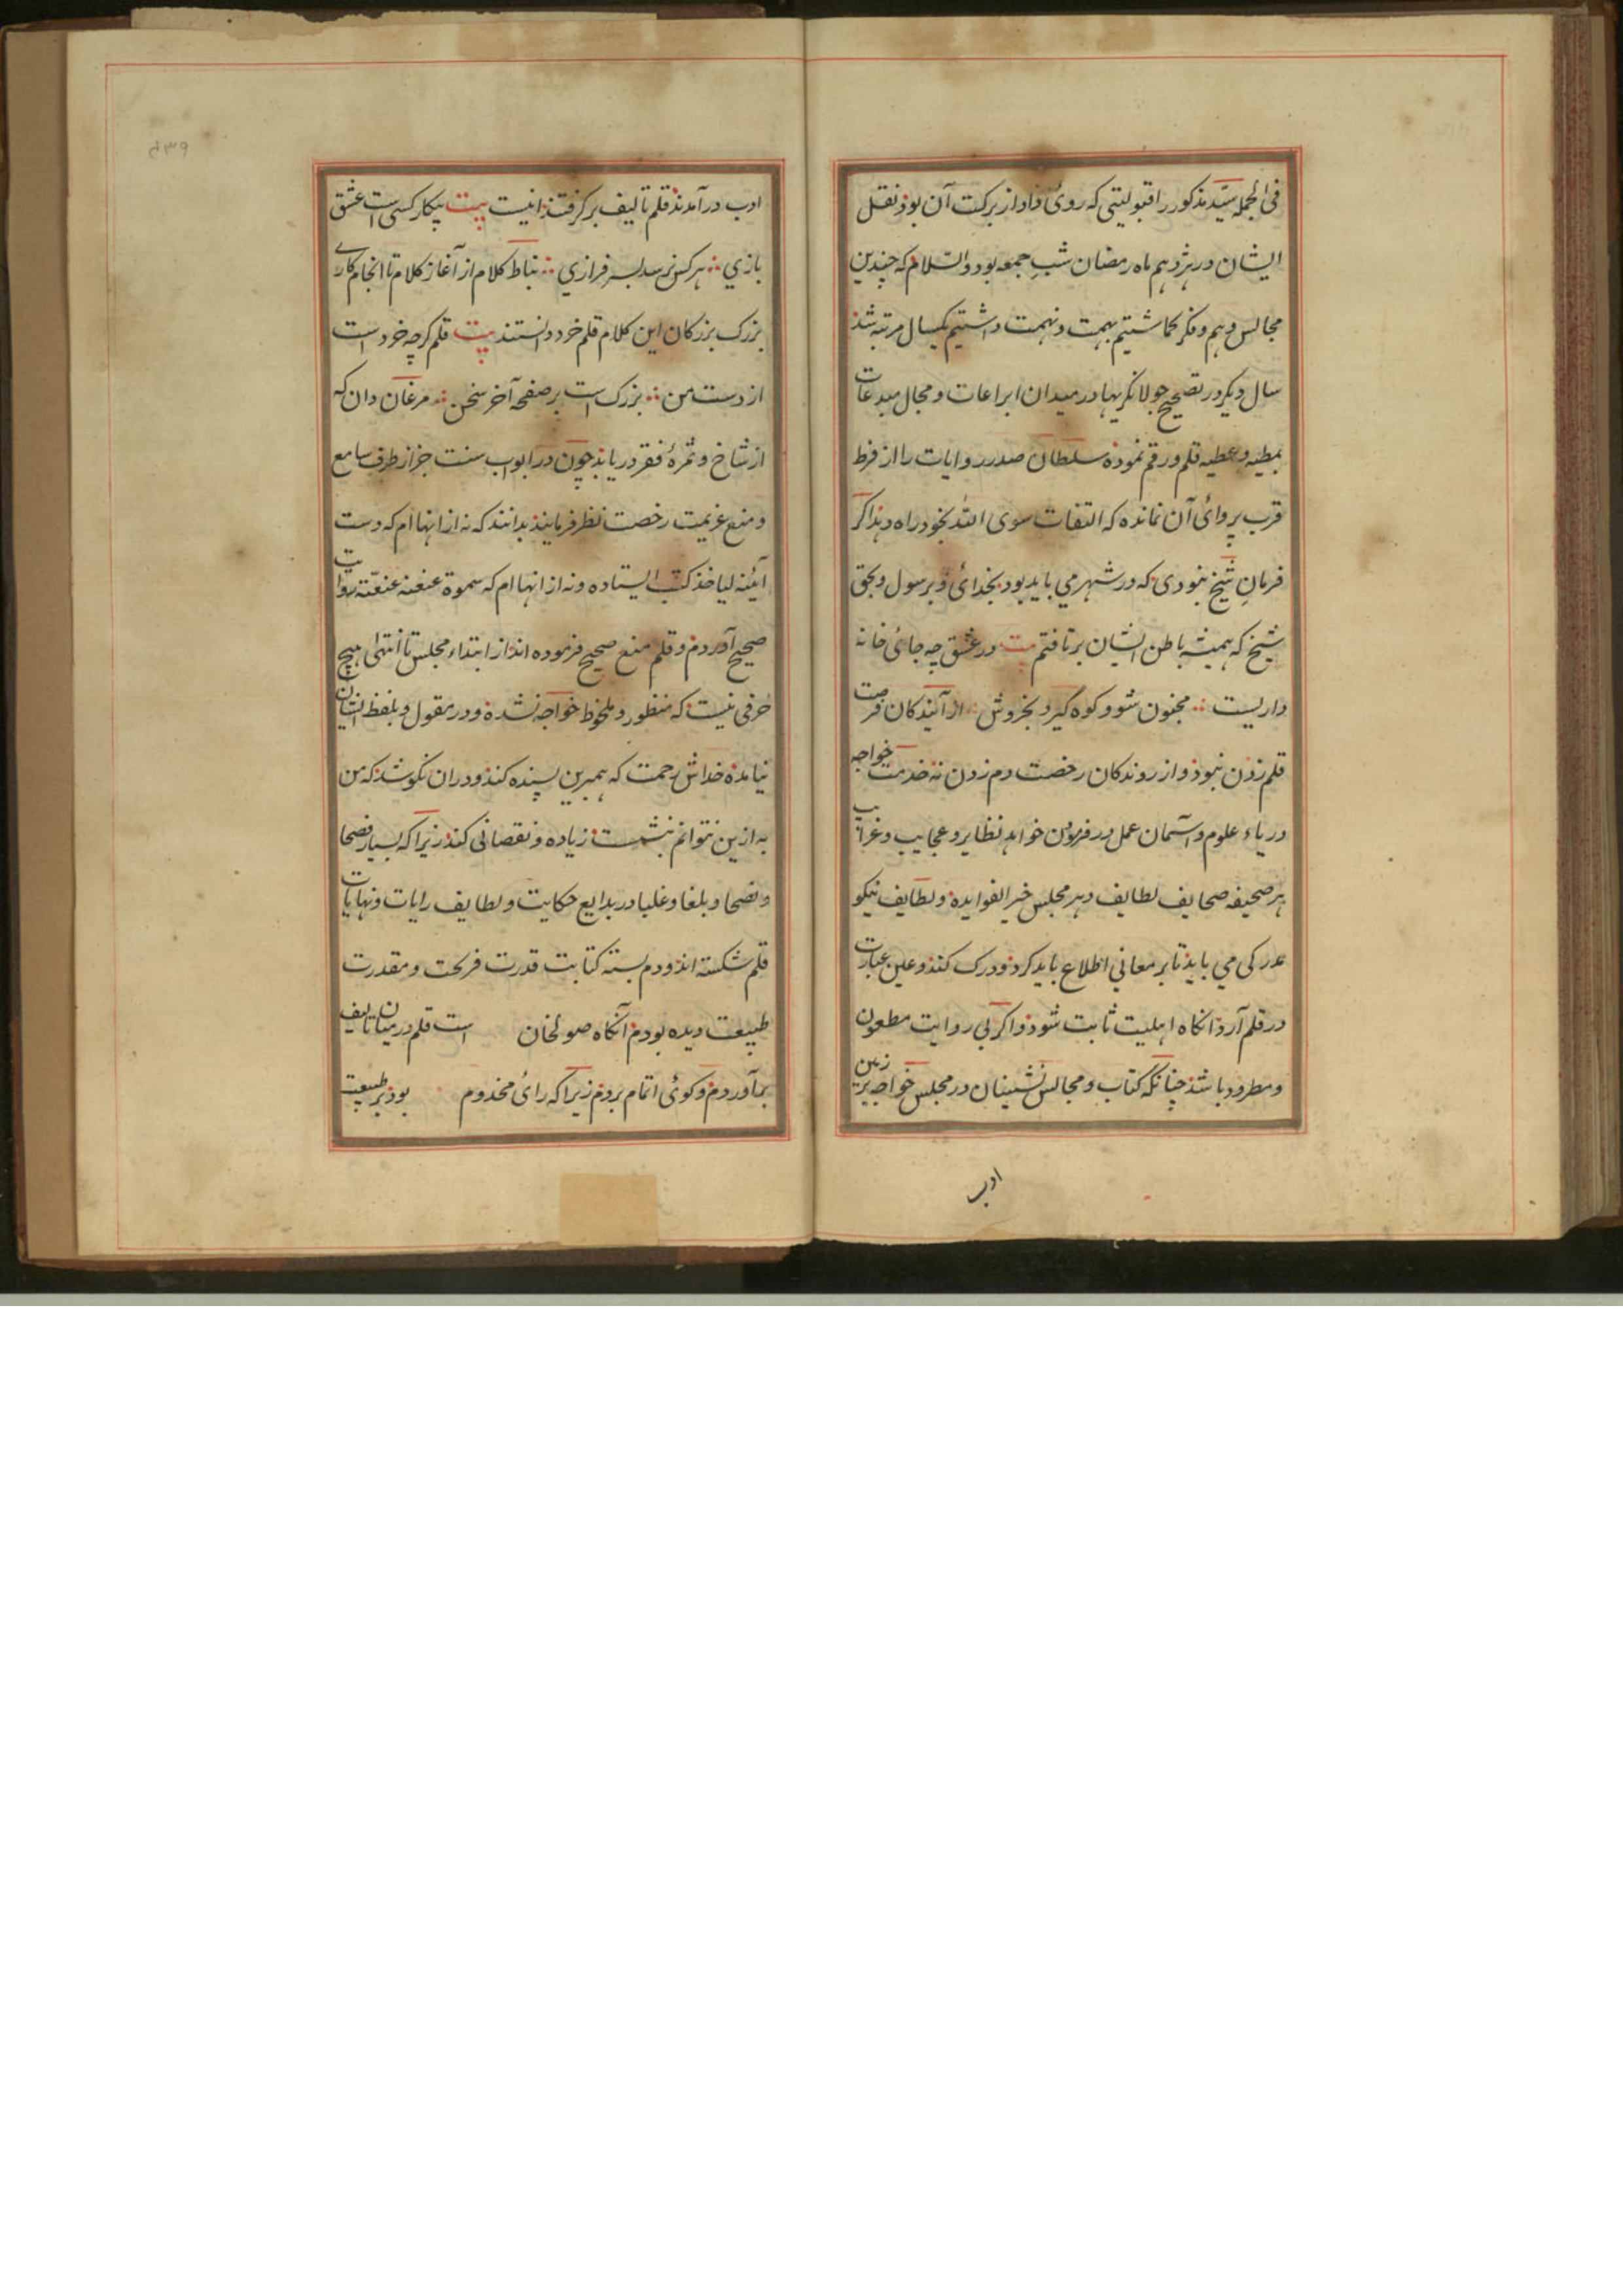 فی الجمله سیّد مذکور را قبولیتی که روئ داد از برکت آن بوذ نقل
ایشان در هژدهم ماه رمضان شب جمعه بود والسّلام که چندین
مجالس وهم و فکر کماشتیم بهمت و نهمت داشتیم یکسال مرتبه شذ
سال دیکر در تصحیح جولانکریها در میدان ابراعات و مجال مبدعات
بمطیه و عطیه قلم و رقم نموذه سلطان صدر روایات را از فرط
قرب پروائ آن نمانده که التفات سوی الله بخود راه دهذ اکر
فرمان شیخ نبودی که در شهر می باید بود بخدائ و برسول و بحق
شیخ که همیشه باطن ایشان برتافتم بیت در عشق چه جائ خانه
داریست مجنون شو و کوه کیر و بخروش از آیندکان فرصت
قلم زدن نبوذ و از روندکان رخصت دم زدن نه خدمت خواجه
دریاء علوم و آسمان عمل در فزون خواهد نظایر و عجایب و غرایب
هر صحیفه صحایف لطایف و هر مجلس خیر الفوایده و لطایف نیکو
مدرکی می بایذ تا بر معانی اطلاع باید کرد و درک کنذ و عین عبارت
در قلم آرد انکاه اهلیت ثابت شوذ و اکر بی روایت مطعون
و مطرود باشذ چنانکه کتاب و مجالس نشینان در مجلس خواجه بزین
ادب
ادب در آمدند قلم تالیف بر کرفتند انیست بیت بیکار کسی است عشق
بازی هر کس نرسد بسرفرازی بناط کلام از آغاز کلام تا انجام کاری
بزرک بزرکان این کلام قلم خرد دانستند بیت قلم کرچه خرد است
از دست من بزرک است بر صفحه آخر سخن مرغان دان که
از شاخ و ثمرهٔ فقر دریابذ چون در ابواب سنت جز از طرف سامع
و منع عزیمت رخصت نظر فرمایند بدانند که نه از انها ام که دست
آئینه لیاخذ کتب ایستاده و نه از انها ام که سموة عنعنه عنعنّه روایت
صحیح آوردم و قلم منع صحیح فرموده انذ از ابتداء مجلس تا انتهی هیچ
حرفی نیست که منظور و ملحوظ خواجه نشده و در مقول و بلفظ ایشان
نیامده خداش رحمت که همبرین پسنده کند و در ان نکوشد که من
به از ین نتوانم بنشست زیاده و نقصانی کنذ زیرا که بسیار فصحا
و نصحا و بلغا و غلبا در بدایع حکایت و لطایف رایات و نهایات
قلم شکسته انذ و دم بسته کتابت قدرت فرحت و مقدرت
طبیعت دیده بودم آنکاه صولخان است قلم در میان تالیف
بماآوردم و کوئ اتمام بردم زیرا که رائ مخدوم بوذ بر طبیعت